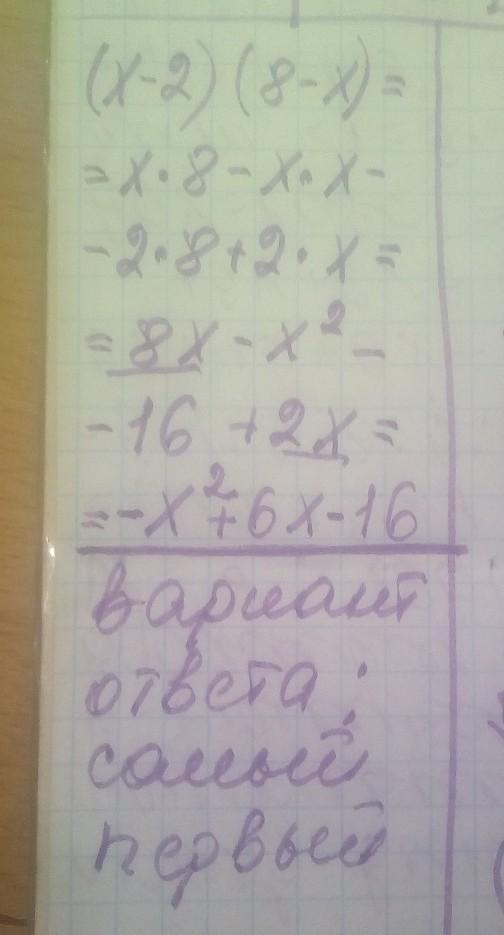 (x-2)(8-x)=
=x·8-x·x-
-2·8+2·x=
=8x-x²-
-16+2x=
=-x²+6x-16
вариант
ответа:
самый
первый